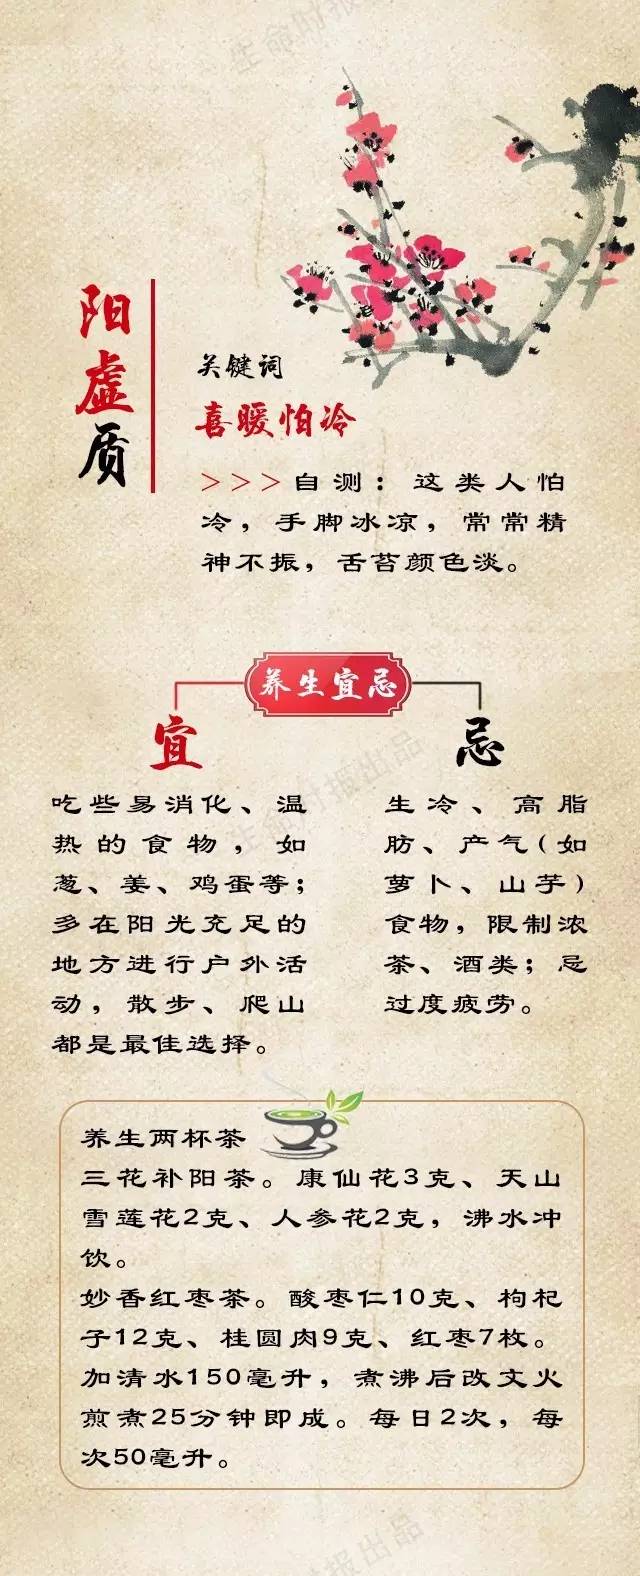 生命时报
阳虚质
关键词
喜暖怕冷
>>>自测：这类人怕
冷，手脚冰凉，常常精
神不振，舌苔颜色淡。
养生宜忌
宜
吃些易消化、温
热的食物，如
葱、姜、鸡蛋等；
多在阳光充足的
地方进行户外活
动，散步、爬山
都是最佳选择。
忌
生冷、高脂
肪、产气（如
萝卜、山芋）
食物，限制浓
茶、酒类；忌
过度疲劳。
生命时报出品
养生两杯茶
三花补阳茶。康仙花3克、天山
雪莲花2克、人参花2克，沸水冲
饮。
妙香红枣茶。酸枣仁10克、枸杞
子12克、桂圆肉9克、红枣7枚。
加清水150毫升，煮沸后改文火
煎煮25分钟即成。每日2次，每
次50毫升。
生命时报出品